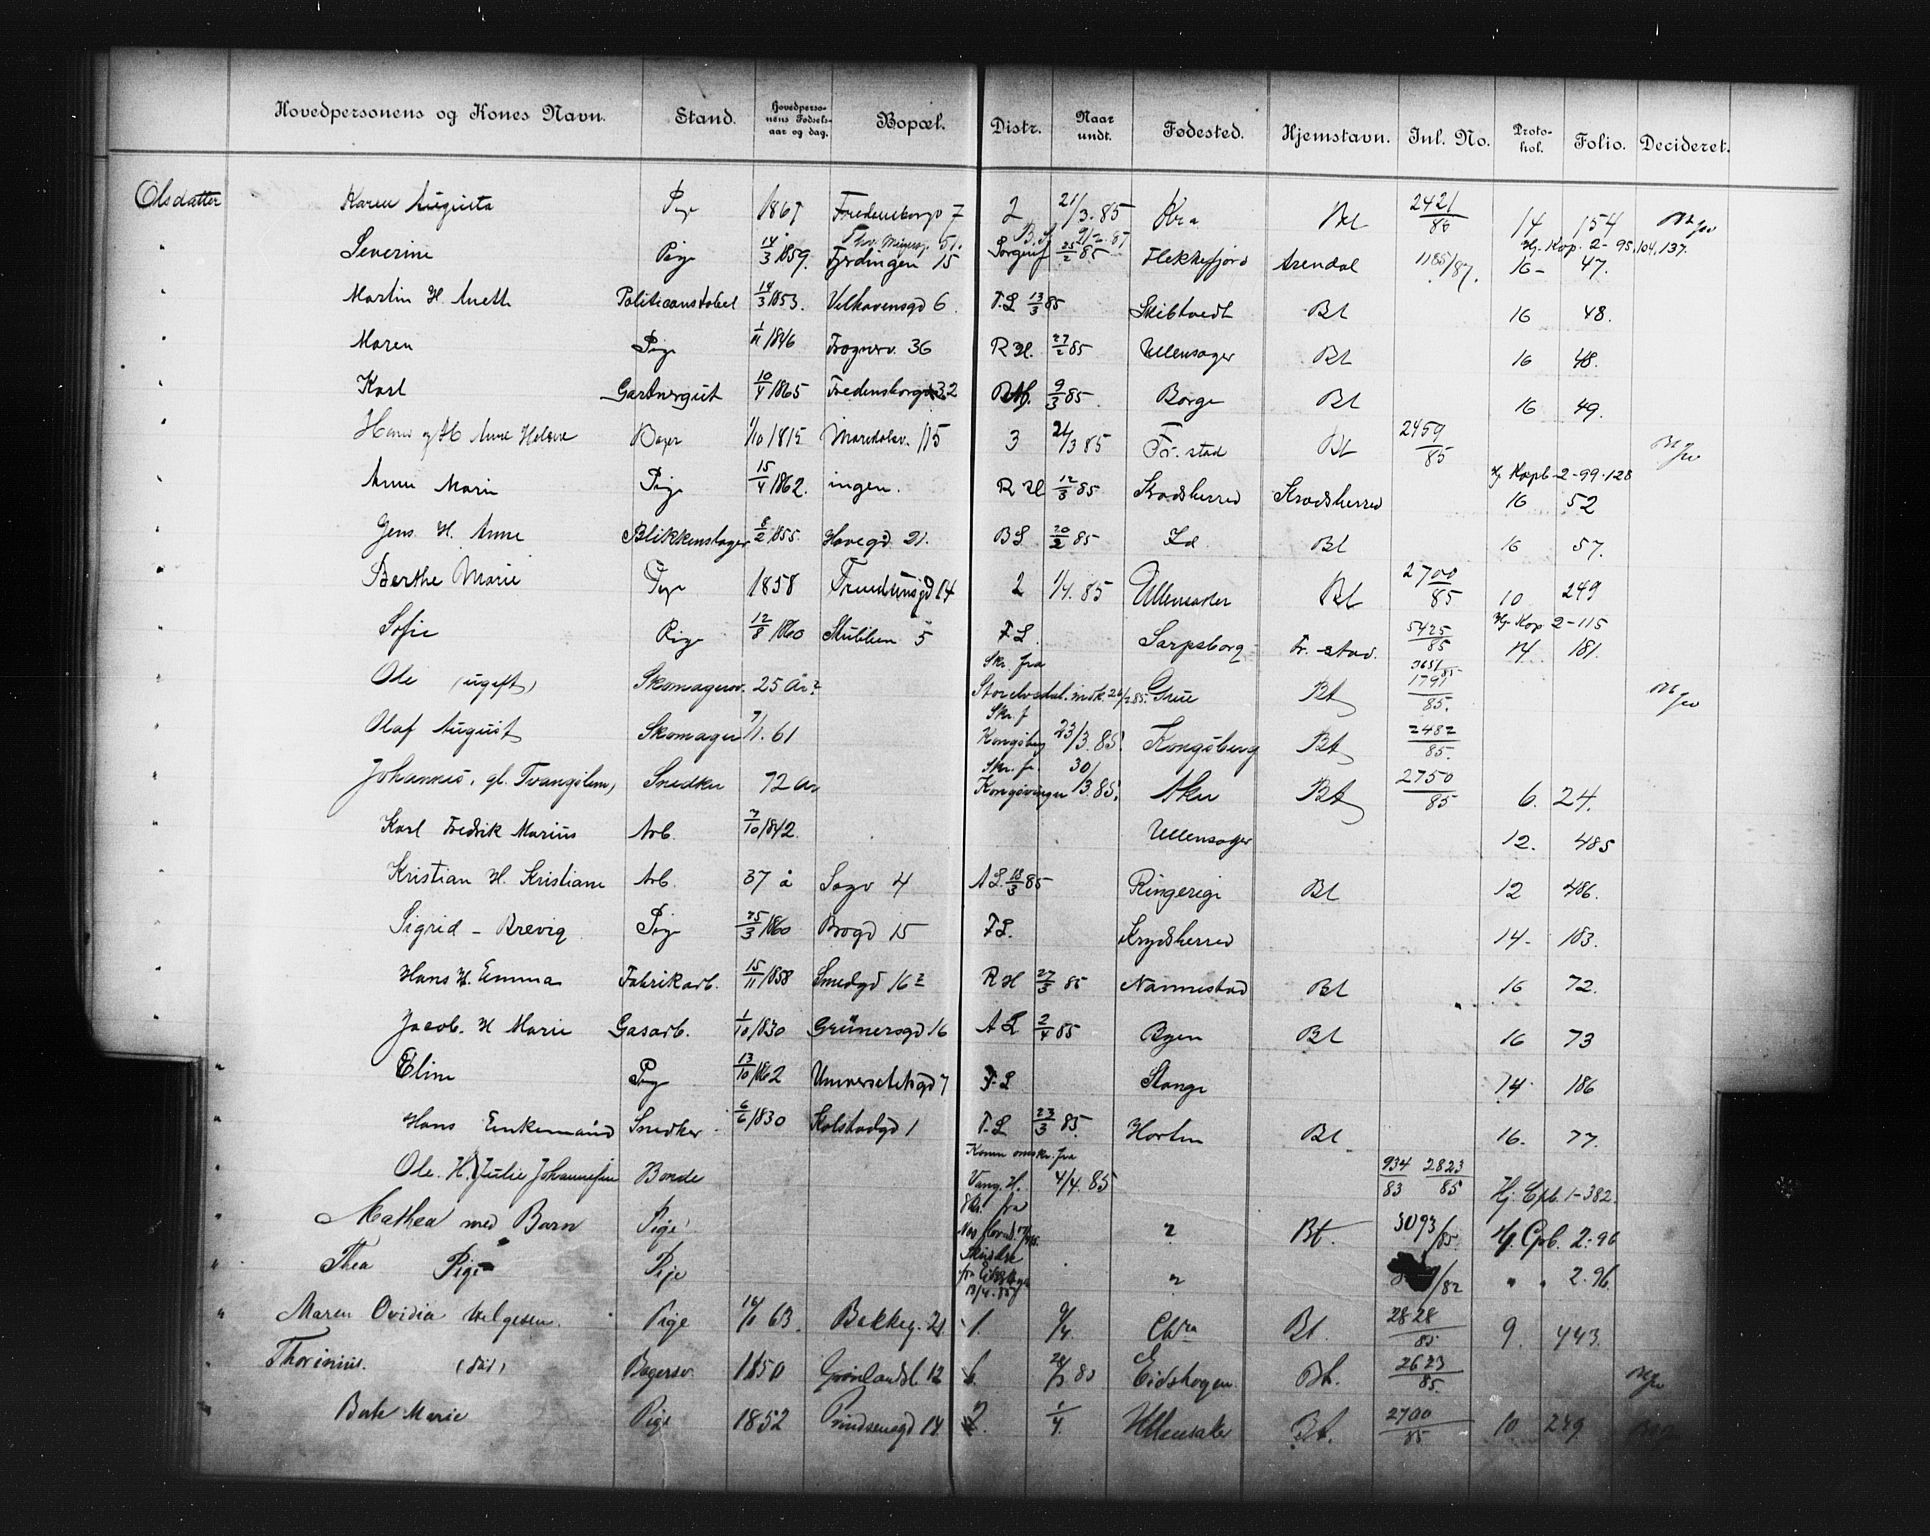 Hovedpersonens og Kones Navn. Stand. Hovedpersonens Fødselsaar og dag. Bopæl. Distr. Naar undt. Fødested. Hjemstavn. Inl. No. Protokol. Folio. Decideret.
Olsdatter Karen Augusta Pige 1867 Fredensborgv 7 2 21/3.85 Kra Bt 2421/85 14 154
" Severine Pige 14/3 1859. Fjerdingen 15 25/2 85 Flekkefjord Arendal 1185/87. 16- 47.
" Martin H. Anett Politikonstabel 14/3 1853. Velhavensgd 6. F.L 13/3 85 Skibtvedt Bt 16 48.
" Maren Pige 1/11 1846 Frognerv. 36 R H. 27/2 85 Ullensager Bt 16 48.
" Karl Gartnergut 10/4 1865 Fredensborgv 32 9/3 85 Borge Bt 16 49.
" Hans og H Anne Helene Bager 1/10 1815 Maridalsv. 115 3 21/3 85 Fr. stad Bt 2459/85
Hj Kopb 2-99-128
" Anne Marie Pige 15/4 1862. ingen. R H 12/3 85 Kradsherred Kradsherred 16 52
" Jens H. Anne Blikkenslager 8/2 1855. Havegd 21. B L 20/2 85 Id Bt 16 57.
" Berthe Marie Pige 1858 14 2 1/4. 85 Bt 2700/85 10 249
Hj Kop 2-115
" Sofie Pige 12/8 1860 Stubben 5 F L. Sarpsborg Fr. stad. 5425/85 14 181.
Skr. fra
" Ole (ugift) Skomagersv. 25 År Storelvedal. Grue Bt 1791/85.
Skr. f
" Olaf August Skomager 7/1. 61 Kongsberg 23/3.85. Kongsberg Bt 2482/85.
Skr. fr 30/
" Johannes, gl. Tvangslem, Snedker 72 Aar Kongsvinger /3.85. Aker Bt 2750/85 6. 24.
" Karl Fredrik Marius Arb. 7/10 1842. Ullensager 12. 485
" Kristian H. Kristiane Arb. 37 å Sagv 4 A L. 18/3 85 Ringerige Bt 12 486.
" Sigrid - Brevig Pige 25/3 1860 Brogd 15 F L. Krydsherred 14- 183.
" Hans H. Emma Fabrikarb. 15/11 1858 Smedgd 16 R H 27/3 85 Nannestad Bt 16 72.
" Jacob. H Marie Gasarb. 1/10 1830 Grünersgd 16 A L 2/4 85 Byen Bt 16 73
" Eline Pige 13/10 1862 Universitetsgd 7 F L Stange 14 186
" Hans Enkemand Snedker 6/6 1830 Kolstadgd 1 F. L 23/3 85. Horten Bt 16- 77.
Komm omskr. fra
" Ole. H. Julie Johannesen Bonde Vang. H. 4/4. 85 934/83 2823/85 Hj. Cpb. 1-382.
" Mathea med Barn Pige Skr. fra " Bt. 3093/85. Hj. Cpb. 2-96
" Thea Pige Pige " /82 " " 2.96.
" Maren Ovidia Helgesen. Pige 63. Bakkeg. 21 1. 9/4 Chra Bt. 2828/85 9. 443.
" Thorinius. Bagersv. 1850 Grønlandsl. 12 6. Eidskogen. Bt. 2623/85.
" Berte Marie Pige 1852 Prindsensgd 14. 2. 1/4. Ullensaker Bt. 2700/85 10 249